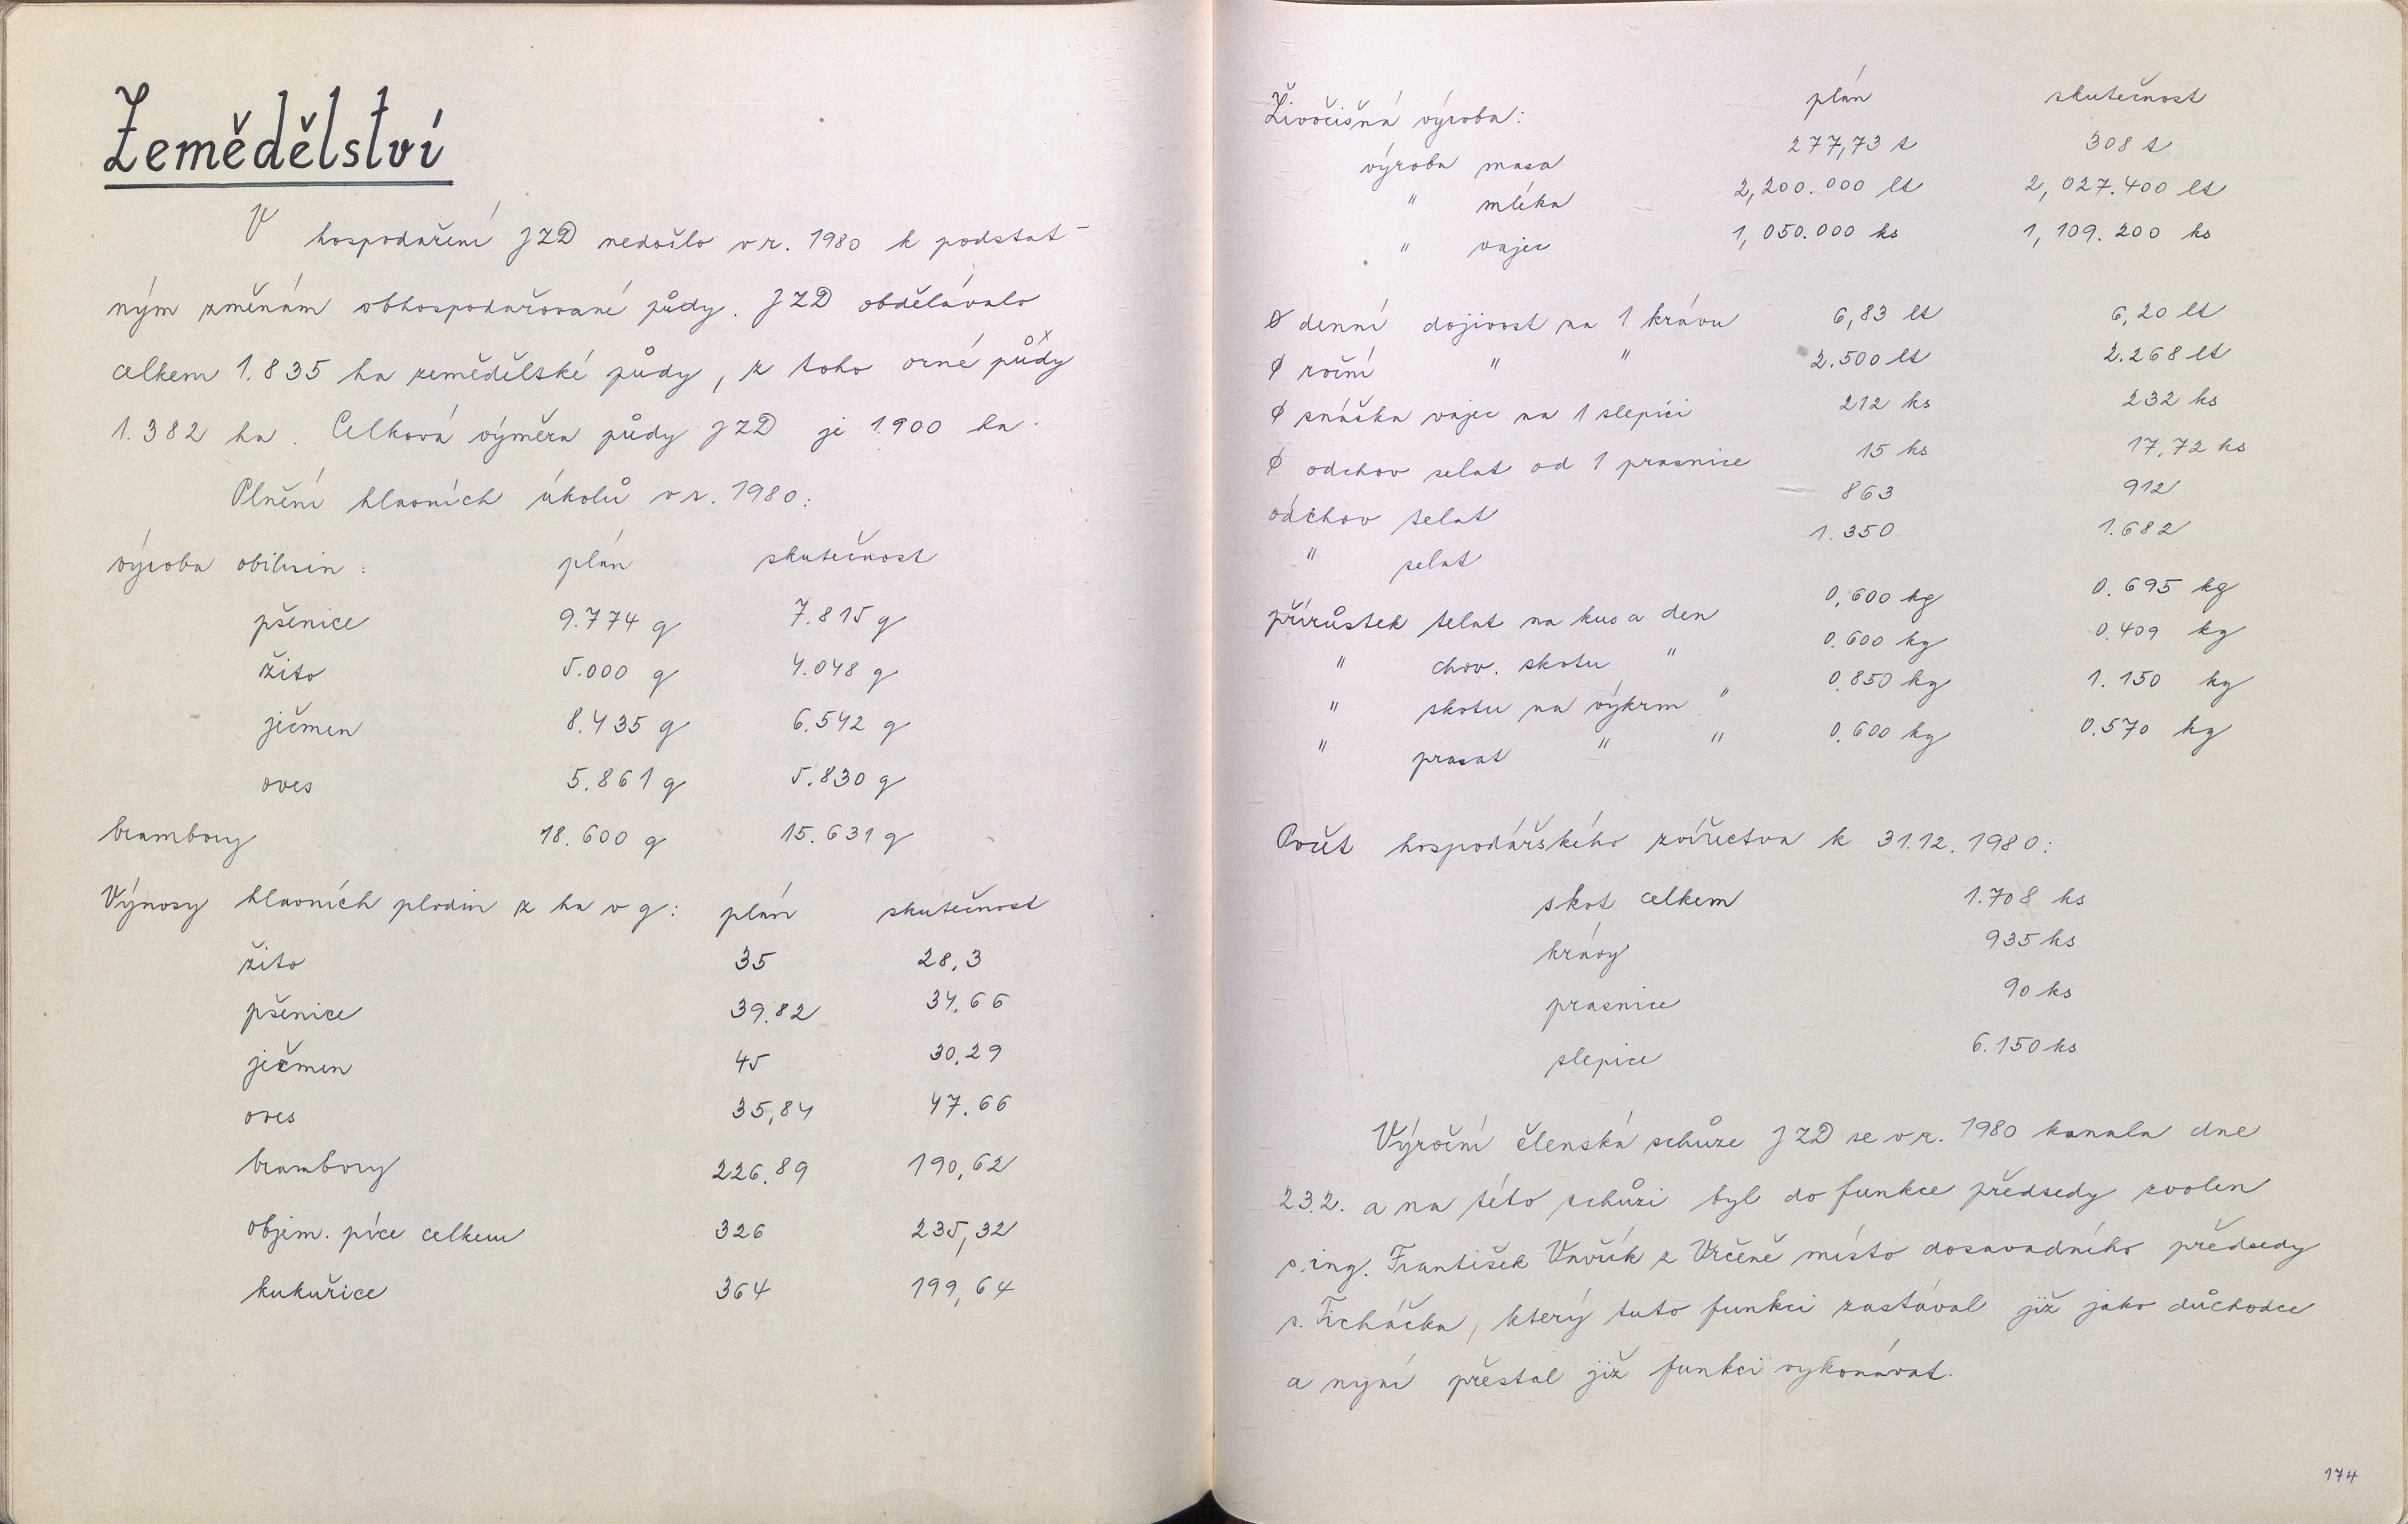 Zemědělství
V hospodaření JZD nedošlo v r. 1980 k podstat-
ným změnám obhospodařované půdy. JZD obdělávalo
celkem 1.835 ha zemědělské půdy, z toho orné půdy
1.382 ha. Celková výměra půdy JZD je 1.900 ha.
Plnění hlavních úkolů v r. 1980:
výroba obilovin: plán skutečnost
pšenice 9.774 q 7.815 q
žito 5.000 q 4.048 q
ječmen 8.435 q 6.542 q
oves 5.861 q 5.830 q
brambory 18.600 q 15.631 q
Výnosy hlavních plodin z ha v q: plán skutečnost
žito 35 28,3
pšenice 39.82 34.66
ječmen 45 30.29
oves 35,84 47.66
brambory 226.89 190,62
objem. píce celkem 326 235,32
kukuřice 364 199,64
Živočišná výroba: plán skutečnost
výroba masa 277,73 t 308 t
" mléka 2,200.000 lt 2,027.400 lt
" vajec 1,050.000 ks 1,109.200 ks
Ø denní dojivost na 1 krávu 6,83 lt 6,20 lt
Ø roční " " 2.500 lt 2.268 lt
Ø snáška vajec na 1 slepici 212 ks 232 ks
Ø odchov selat od 1 prasnice 15 ks 17,72 ks
odchov telat 863 912
" selat 1.350 1.682
přírůstek telat na kus a den 0,600 kg 0.695 kg
" chov. skotu " 0.600 kg 0.409 kg
" skotu na výkrm " 0.850 kg 1.150 kg
" prasat " " 0.600 kg 0.570 kg
Počet hospodářského zvířectva k 31.12.1980:
skot celkem 1.708 ks
krávy 935 ks
prasnice 90 ks
slepice 6.150 ks
Výroční členská schůze JZD se v r. 1980 konala dne
23.2. a na této schůzi byl do funkce předsedy zvolen
s. ing. František Vavřík z Vrčeně místo dosavadního předsedy
s. Ticháčka, který tuto funkci zastával již jako důchodce
a nyní přestal již funkci vykonávat.
174